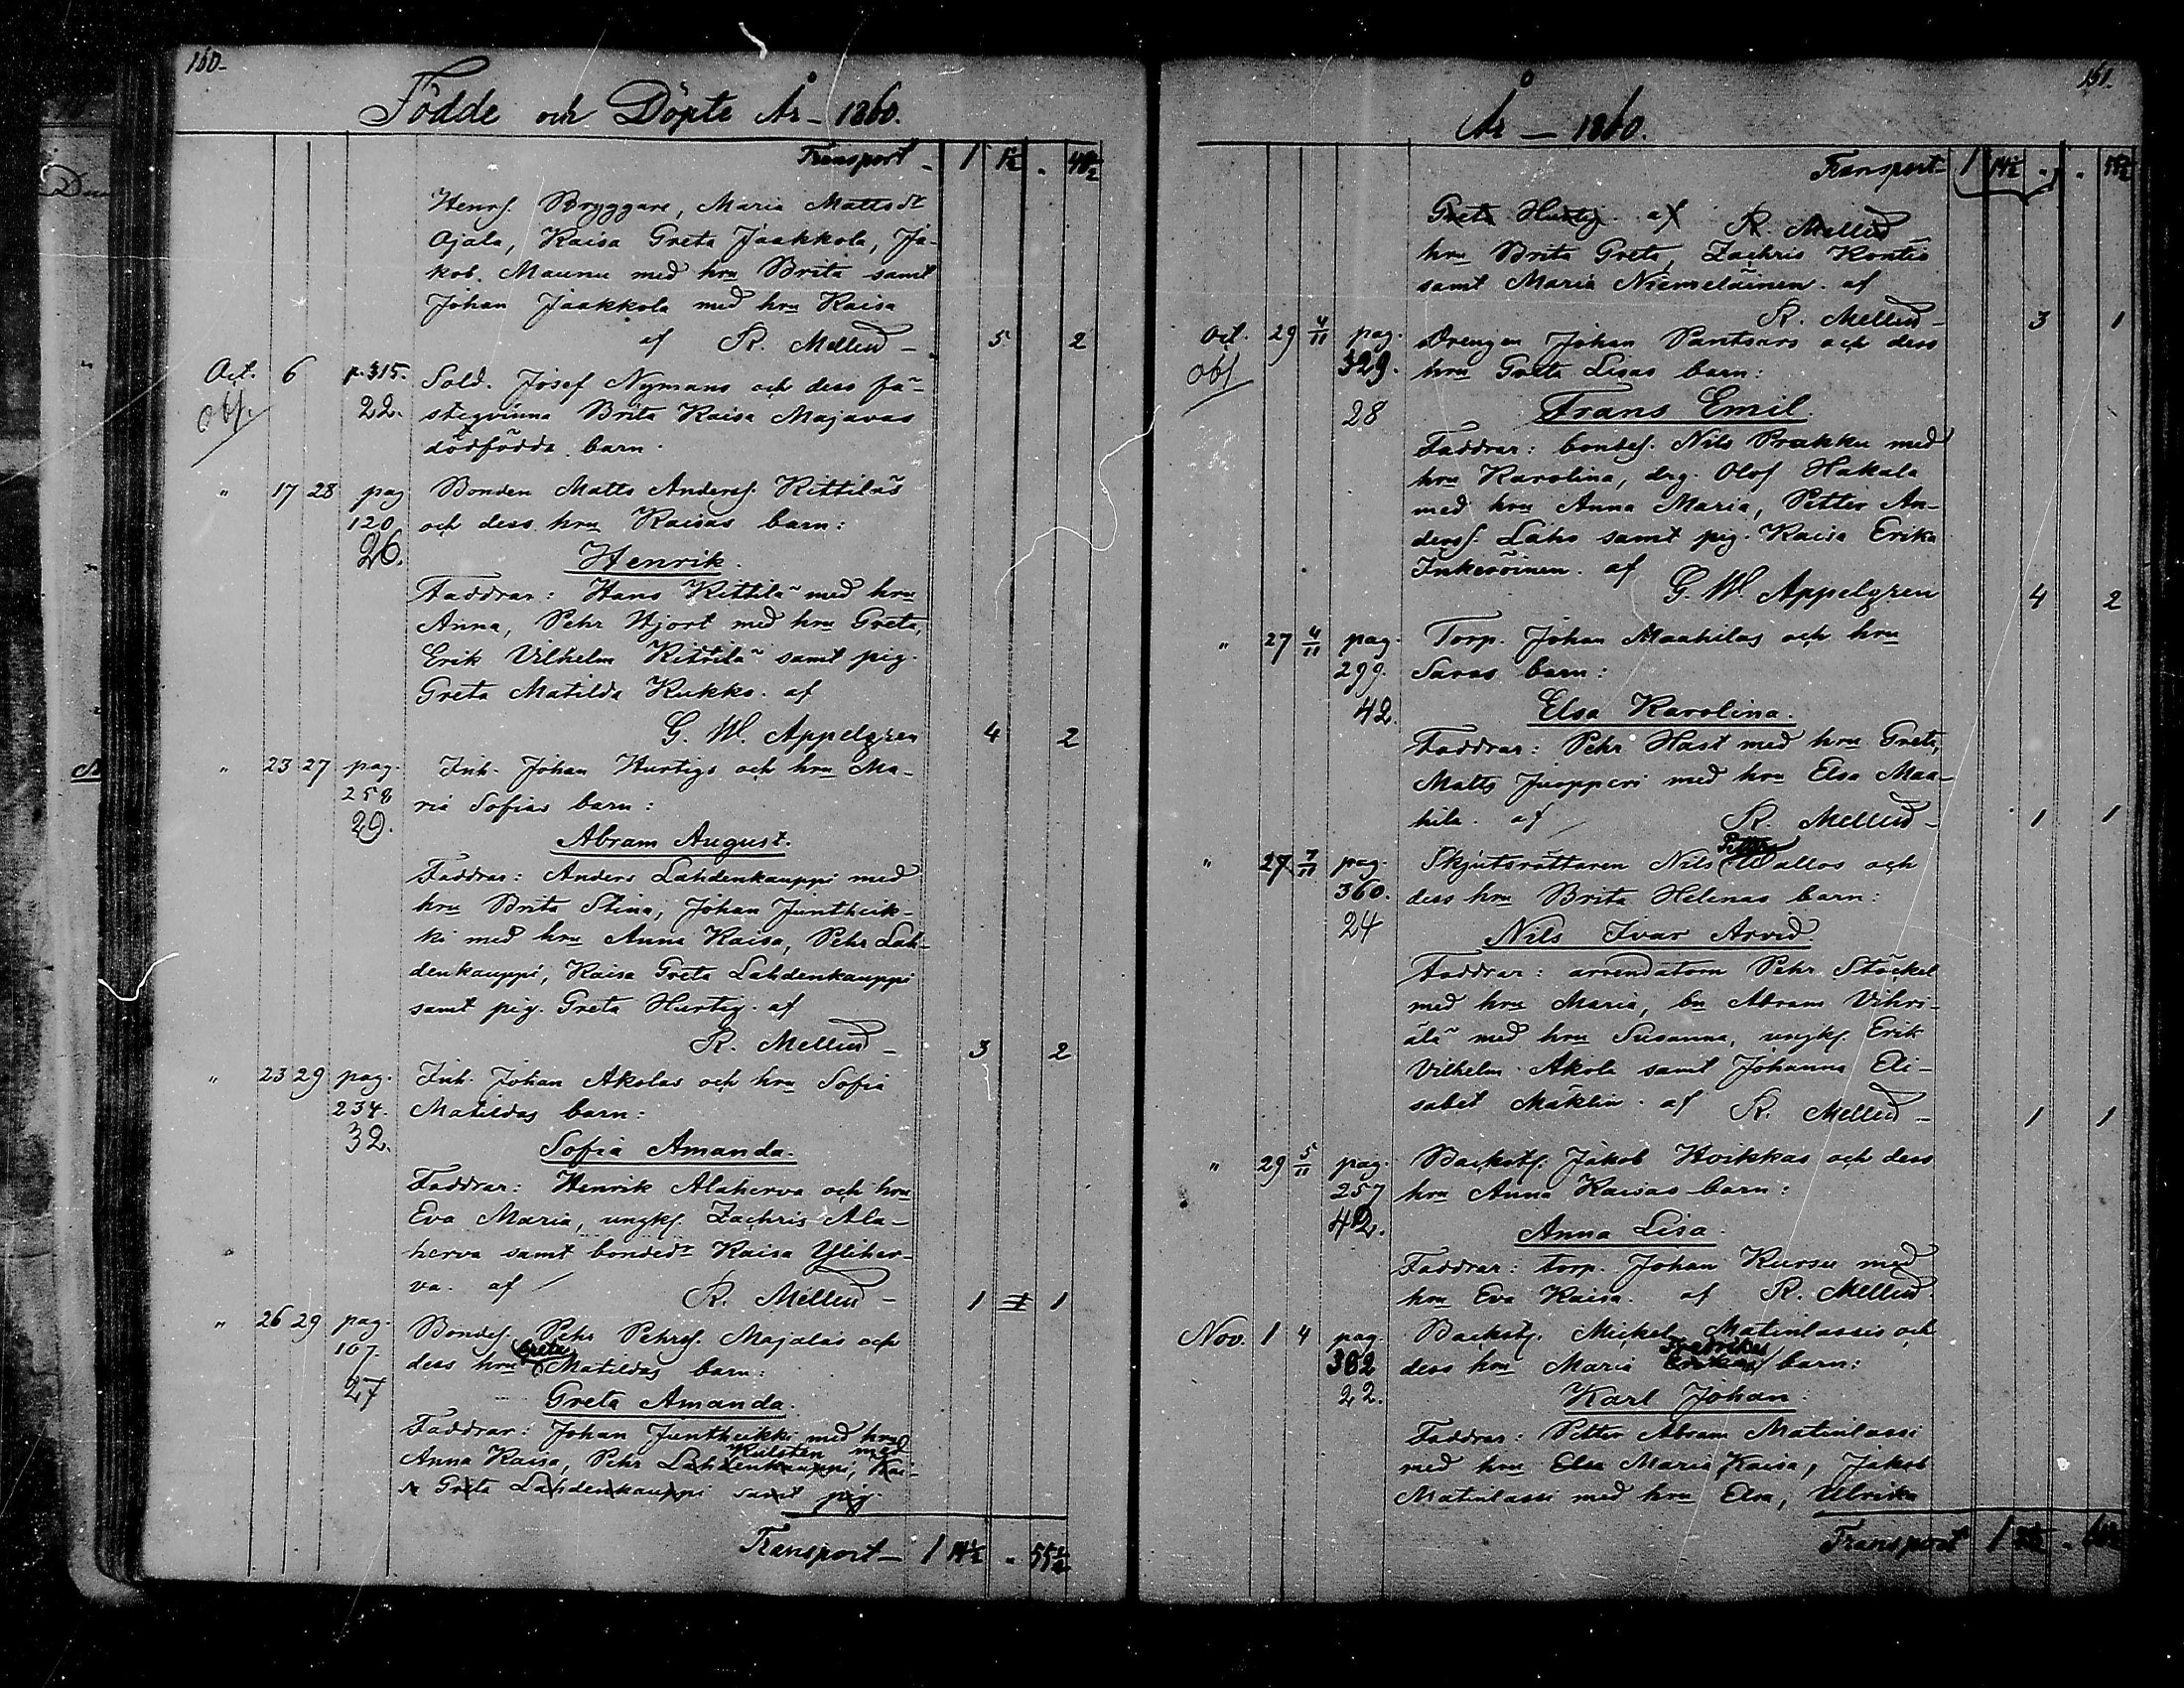 160.
Födde och Döpte År – 1860.
Transport – 1 1½ „ 48½
Henrs. Bryggare, Maria Mattsdr
Ojala, Kaisa Greta Jaakkola, Ja-
kob Maunu med hru Brita samt
Johan Jaakkola med hru Kaisa
af R. Mellin – 5 2
Oct. 6 p. 315. Sold. Josef Nymans och dess fä-
Obs. 22. steqvinna Brita Kaisa Majavas
dödfödda barn.
" 17 28 pag Bonden Matts Anders. Kittiläs
120 och dess hru Kaisas barn:
26. Henrik.
Faddrar: Hans Kittilä med hru
Anna, Pehr Hjort med hru Greta,
Erik Vilhelm Kittilä samt pig.
Greta Matilda Kukko. af
G. W. Appelgren 4 2
" 23 27 pag. Inh. Johan Hurtigs och hru Ma-
258 ria Sofias barn:
29. Abram August.
Faddrar: Anders Lahdenkauppi med
hru Brita Stina, Johan Juntheik-
ki med hru Anna Kaisa, Pehr Lah-
denkauppi, Kaisa Greta Lahdenkauppi
samt pig. Greta Hurtig. af
R. Mellin – 3 2
" 23 29 pag. Inh. Johan Akolas och hru Sofia
234. Matildas barn:
32. Sofia Amanda.
Faddrar: Henrik Alaherva och hru
Eva Maria, ungk. Zachris Ala-
herva samt bondedr Kaisa Yliher-
va. af R. Mellin – 1 1
" 26 29 pag. Bondes. Pehr Pehrs. Majalas och
107. dess hru Greta Matildas barn:
27 Greta Amanda.
Faddrar: Johan Juntheikki med hru
Kulsten med
Anna Kaisa, Pehr Lahdenkauppi, Kai-
sa Greta Lahdenkauppi samt pig.
Transport – 1 14½ „ 55½
161.
År – 1860.
Transport – 1 14½ „ 55½
Greta Hurtig. af R. Mellin
hru Brita Greta, Zachris Kontio
samt Maria Niemeläinen. af
R. Mellin – 3 1
Oct. 29 4/11 pag. Drengen Johan Pantsars och dess
Obs 329. hru Greta Lisas barn:
28 Frans Emil.
Faddrar: bondes. Nils Prakku med
hru Karolina, drg. Olof Hakala
med hru Anna Maria, Petter An-
ders. Laho samt pig. Kaisa Erika
Inkeröinen. af
G. W. Appelgren 4 2
" 27 4/11 pag. Torp. Johan Maahilas och hru
299. Saras barn:
42. Elsa Karolina.
Faddrar: Pehr Hast med hru Greta,
Matts Juopperi med hru Elsa Maa-
hila. af R. Mellin – 1 1
" 27 7/11 pag. Skjutsrättaren Nils Petter Wallos och
360. dess hru Brita Helenas barn:
24 Nils Ivar Arvid.
Faddrar: arrendatorn Pehr Stöckel
med hru Maria, bn Abram Vihri-
älä med hru Susanna, ungk. Erik
Vilhelm Akola samt Johanna Eli-
sabet Mäklin. af R. Mellin – 1 1
" 29 5/11 pag. Backst. Jakob Hvikkas och dess
257 hru Anna Kaisas barn:
42. Anna Lisa.
Faddrar: torp. Johan Kursu med
hru Eva Kaisa. af R. Mellin.
Nov. 1 4 pag. Backst. Mickel Matinlassis och
302 dess hru Maria Fredrikas barn:
22. Karl Johan.
Faddrar: Petter Abram Matinlassi
med hru Elsa Maria Kaisa, Jakob
Matinlassi med hru Elsa, Ulrika
Transport 1